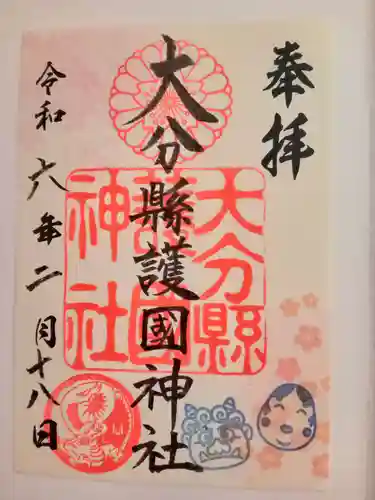 奉拝
大分縣護國神社
大分縣護國神社
令和六年二月十八日